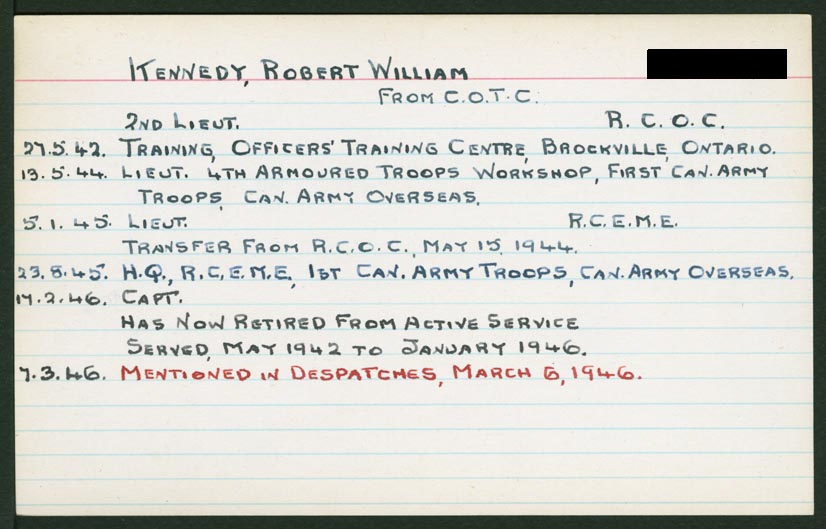 KENNEDY, ROBERT WILLIAM
FROM C.O.T.C.
2ND LIEUT. R.C.O.C.
27.5.42. TRAINING, OFFICERS' TRAINING CENTRE, BROCKVILLE, ONTARIO.
13.5.44. LIEUT. 4TH ARMOURED TROOPS WORKSHOP, FIRST CAN. ARMY
TROOPS, CAN. ARMY OVERSEAS.
5.1.45. LIEUT. R.C.E.M.E.
TRANSFER FROM R.C.O.C., MAY 15, 1944.
23.8.45. H.Q., R.C.E.M.E., 1ST CAN. ARMY TROOPS, CAN. ARMY OVERSEAS.
17.2.46. CAPT.
HAS NOW RETIRED FROM ACTIVE SERVICE
SERVED, MAY 1942 TO JANUARY 1946.
7.3.46. MENTIONED IN DESPATCHES, MARCH 6, 1946.